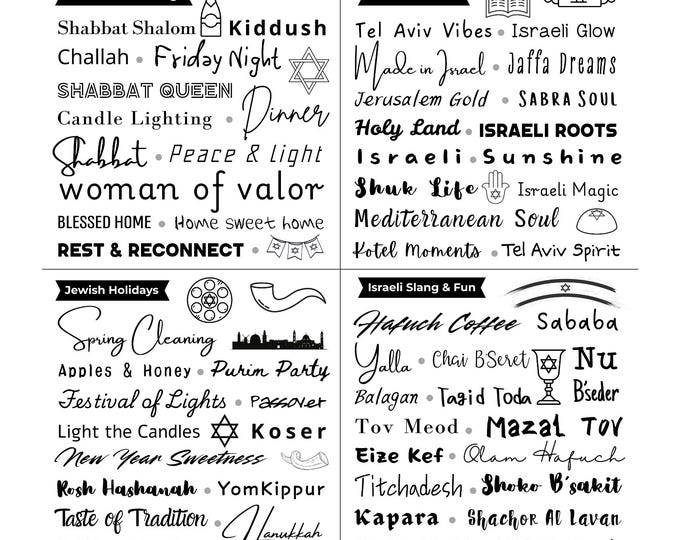 Shabbat Shalom Kiddush
Challah • Friday Night
SHABBAT QUEEN
Candle Lighting • Dinner
Shabbat • Peace & light
woman of valor
BLESSED HOME • Home sweet home
REST & RECONNECT
Tel Aviv Vibes • Israeli Glow
Made in Israel • Jaffa Dreams
Jerusalem Gold • SABRA SOUL
Holy Land • ISRAELI ROOTS
Israeli • Sunshine
Shuk Life Israeli Magic
Mediterranean Soul
Kotel Moments • Tel Aviv Spirit
Jewish Holidays
Spring Cleaning
Apples & Honey • Purim Party
Festival of Lights • Passover
Light the Candles Koser
New Year Sweetness
Rosh Hashanah • YomKippur
Taste of Tradition • Hanukkah
Israeli Slang & Fun
Hafuch Coffee • Sababa
Yalla • Chai BSeret Nu
Balagan • Tagid Toda B'seder
Tov Meod • Mazal Tov
Eize Kef • Olam Hafuch
Titchadesh • Shoko B'sakit
Kapara • Shachor Al Lavan